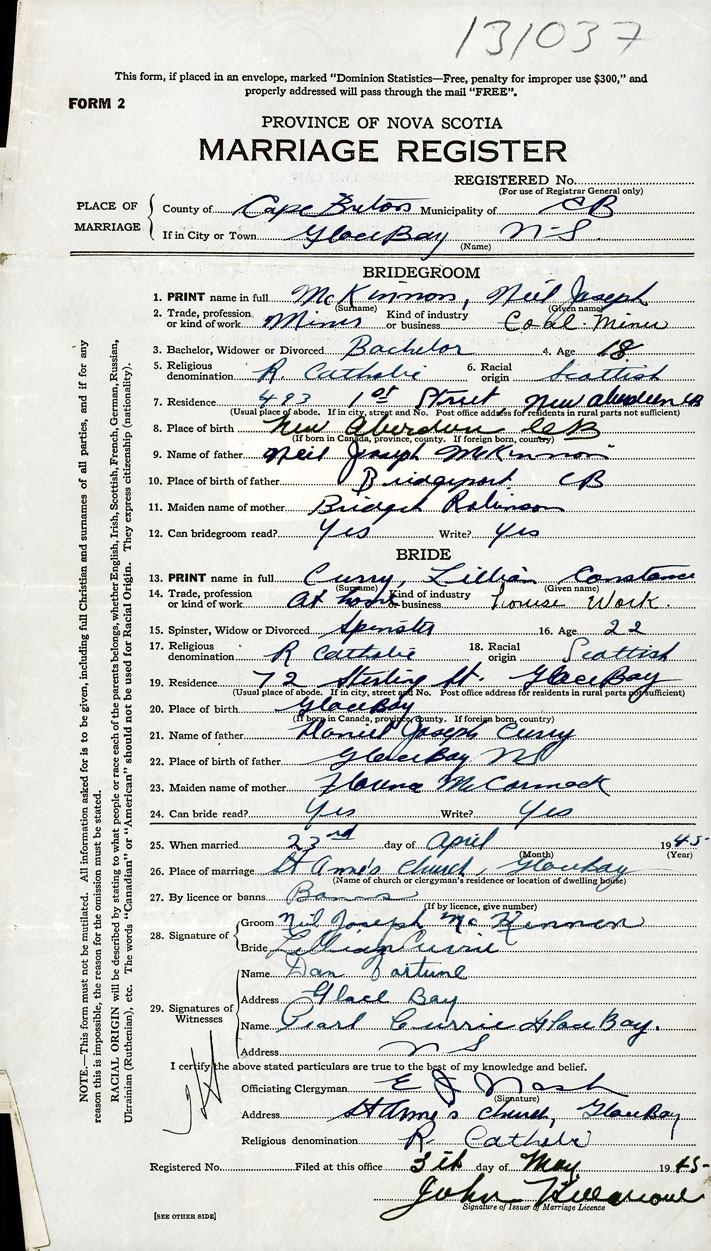 131037
This form, if placed in an envelope, marked "Dominion Statistics—Free, penalty for improper use $300," and
properly addressed will pass through the mail "FREE".
FORM 2
PROVINCE OF NOVA SCOTIA
MARRIAGE REGISTER
REGISTERED No.
(For use of Registrar General only)
PLACE OF MARRIAGE
County of Cape Breton Municipality of CB
If in City or Town Glace Bay N-S.
(Name)
BRIDEGROOM
1. PRINT name in full McKinnon, Neil Joseph
(Surname) (Given name)
2. Trade, profession or kind of work Miner Kind of industry or business Coal-Mine
3. Bachelor, Widower or Divorced Bachelor 4. Age 18
5. Religious denomination R. Catholic 6. Racial origin Scottish
7. Residence 493 1st Street, New Aberdeen CB
(Usual place of abode. If in city, street and No. Post office address for residents in rural parts not sufficient)
8. Place of birth New Aberdeen CB
(If born in Canada, province, county. If foreign born, country)
9. Name of father Neil Joseph McKinnon
10. Place of birth of father Bridgeport CB
11. Maiden name of mother Bridget Robinson
12. Can bridegroom read? Yes Write? Yes
BRIDE
13. PRINT name in full Curry, Lillian Constance
(Surname) (Given name)
14. Trade, profession or kind of work At home Kind of industry or business house Work.
15. Spinster, Widow or Divorced Spinster 16. Age 22
17. Religious denomination R Catholic 18. Racial origin Scottish
19. Residence 72 Sterling St. Glace Bay
(Usual place of abode. If in city, street and No. Post office address for residents in rural parts not sufficient)
20. Place of birth Glace Bay
(If born in Canada, province, county. If foreign born, country)
21. Name of father Daniel Joseph Curry
22. Place of birth of father Glace Bay NS
23. Maiden name of mother Florence McCormack
24. Can bride read? Yes Write? Yes
25. When married 23rd day of April 1945-
(Month) (Year)
26. Place of marriage St Anne's Church, Glace Bay
(Name of church or clergyman's residence or location of dwelling house)
27. By licence or banns Banns
(If by licence, give number)
28. Signature of
Groom Neil Joseph McKinnon
Bride Lillian Currie
29. Signatures of Witnesses
Name Dan Fortune
Address Glace Bay
Name Pearl Currie Glace Bay.
Address N S
I certify the above stated particulars are true to the best of my knowledge and belief.
Officiating Clergyman E J Nash
(Signature)
Address St Anne's Church, Glace Bay
Religious denomination R. Catholic
Registered No. Filed at this office 3th day of May 1945-
John
Signature of Issuer of Marriage Licence
[SEE OTHER SIDE]
NOTE.—This form must not be mutilated. All information asked for is to be given, including full Christian and surnames of all parties, and if for any
reason this is impossible, the reason for the omission must be stated.
RACIAL ORIGIN will be described by stating to what people or race each of the parents belongs, whether English, Irish, Scottish, French, German, Russian,
Ukrainian (Ruthenian), etc. The words "Canadian" or "American" should not be used for Racial Origin. They express citizenship (nationality).